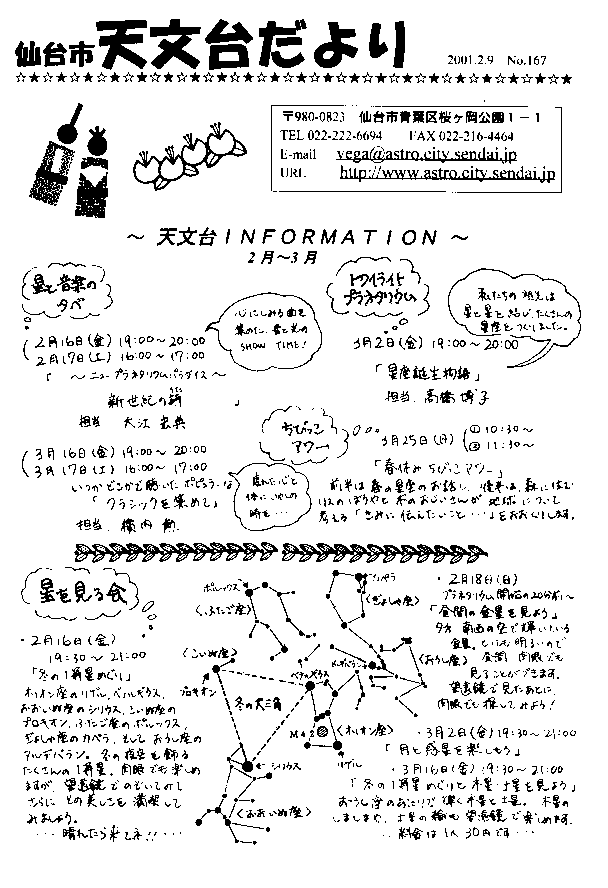 仙台市 天文台だより 2001.2.9 No.167
〒980-0823 仙台市青葉区桜ヶ岡公園1-1
TEL 022-222-6694 FAX 022-216-4464
E-mail vega@astro.city.sendai.jp
URL http://www.astro.city.sendai.jp
～ 天文台INFORMATION ～
2月～3月
星と音楽の
夕べ
2月16日(金) 19:00～20:00
2月17日(土) 16:00～17:00
心にしみる曲を
集めた、音と光の
SHOW TIME!
「～ニュープラネタリウムパラダイス～
新世紀の 」
担当 大江 宏典
3月16日(金) 19:00～20:00
3月17日(土) 16:00～17:00
いつかどこかで聴いたポピュラーな
「クラシックを集めて」
担当 横内
疲れた心と
体にいやしの
時を…
トワイライト
プラネタリウム
私たちの祖先は
星と星を結び、たくさんの
星座をつくりました。
3月2日(金) 19:00～20:00
「星座誕生物語」
担当 高橋 博子
ちびっこ
アワー
3月25日(日)
① 10:30～
② 11:30～
「春休みちびっこアワー」
前半は春の星座のお話し、後半は、森に住む
木のおじいさんが地球について
考える「きみに伝えたいこと…」をおおくりします。
星を見る会
・2月16日(金)
19:30～21:00
「冬の1等星めぐり」
オリオン座のリゲル、ベテルギウス、
おおいぬ座のシリウス、こいぬ座の
プロキオン、ふたご座のポルックス、
ぎょしゃ座のカペラ、そしておうし座の
アルデバラン。冬の夜空を飾る
たくさんの1等星。肉眼でも楽しめ
ますが、望遠鏡でのぞいてみて
さらにその美しさを満喫して
みましょう。
…晴れたら来てネ!!…
ポルックス
〈ふたご座〉
カペラ
〈ぎょしゃ座〉
〈こいぬ座〉
プロキオン
ベテルギウス
アルデバラン
〈おうし座〉
冬の大三角
M42
〈オリオン座〉
リゲル
シリウス
〈おおいぬ座〉
・2月18日(日)
プラネタリウム開始の20分前～
「昼間の金星を見よう」
夕方、南西の空で輝いている
金星。とても明るいので
昼間、肉眼でも
見ることができます。
望遠鏡で見たあとに、
肉眼でも探してみよう!
・3月2日(金) 19:30～21:00
「月と惑星を楽しもう」
・3月16日(金) 19:30～21:00
「冬の1等星めぐりと木星・土星を見よう」
おうし座のあたりで輝く木星と土星。木星の
しましまや、土星の輪も望遠鏡で楽しめます。
…料金は1人30円です…